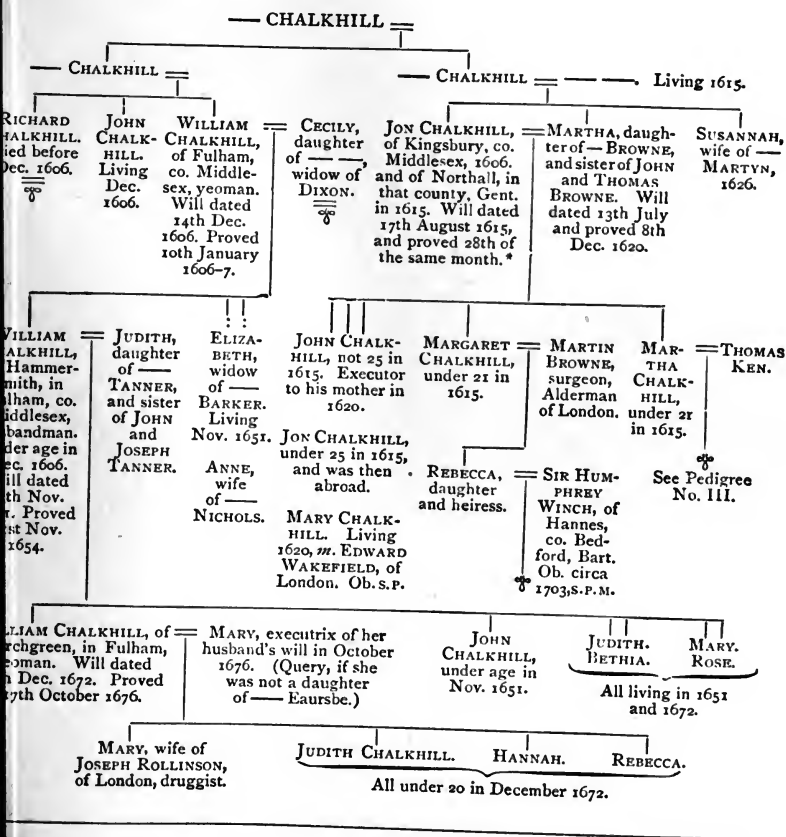 — CHALKHILL =
— CHALKHILL =
— CHALKHILL = — —. Living 1615.
RICHARD
HALKHILL.
ied before
Dec. 1606.
JOHN
CHALK-
HILL.
Living
Dec.
1606.
WILLIAM =
CHALKHILL,
of Fulham,
co. Middle-
sex, yeoman.
Will dated
14th Dec.
1606. Proved
10th January
1606-7.
CECILY,
daughter
of — —,
widow of
DIXON.
JON CHALKHILL, =
of Kingsbury, co.
Middlesex, 1606.
and of Northall, in
that county, Gent.
in 1615. Will dated
17th August 1615,
and proved 28th of
the same month.*
MARTHA, daugh-
ter of — BROWNE,
and sister of JOHN
and THOMAS
BROWNE. Will
dated 13th July
and proved 8th
Dec. 1620.
SUSANNAH,
wife of —
MARTYN,
1626.
WILLIAM =
ALKHILL,
Hammer-
mith, in
lham, co.
iddlesex,
bandman.
der age in
ec. 1606.
ill dated
th Nov.
. Proved
st Nov.
1654.
JUDITH,
daughter
of —
TANNER,
and sister
of JOHN
and
JOSEPH
TANNER.
ELIZA-
BETH,
widow
of —
BARKER.
Living
Nov. 1651.
ANNE,
wife
of —
NICHOLS.
JOHN CHALK-
HILL, not 25 in
1615. Executor
to his mother in
1620.
JON CHALKHILL,
under 25 in 1615,
and was then
abroad.
MARY CHALK-
HILL. Living
1620, m. EDWARD
WAKEFIELD, of
London. Ob. S.P.
MARGARET =
CHALKHILL,
under 21 in
1615.
MARTIN
BROWNE,
surgeon,
Alderman
of London.
MAR-
THA
CHALK-
HILL,
under 21
in 1615.
= THOMAS
KEN.
See Pedigree
No. III.
REBECCA, =
daughter
and heiress.
SIR HUM-
PHREY
WINCH, of
Hannes,
co. Bed-
ford, Bart.
Ob. circa
1703, S.P.M.
LLIAM CHALKHILL, of =
rchgreen, in Fulham,
eoman. Will dated
Dec. 1672. Proved
7th October 1676.
MARY, executrix of her
husband's will in October
1676. (Query, if she
was not a daughter
of — Eaursbe.)
JOHN
CHALKHILL,
under age in
Nov. 1651.
JUDITH.
BETHIA.
MARY.
ROSE.
All living in 1651
and 1672.
MARY, wife of
JOSEPH ROLLINSON,
of London, druggist.
JUDITH CHALKHILL. HANNAH. REBECCA.
All under 20 in December 1672.